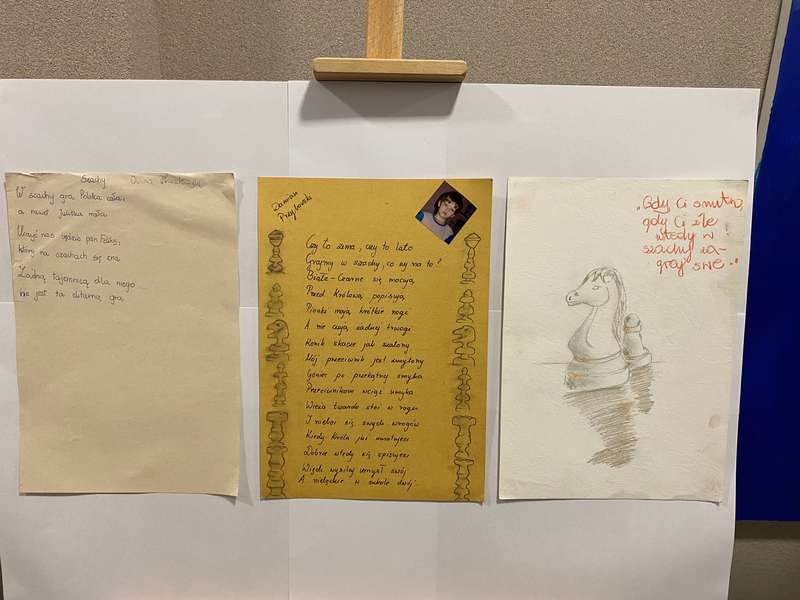 Szachy
W szachy gra Polska cała,
a nawet Julitka mała.
Uczyć nas będzie pan Feliks,
który na szachach się zna.
Żadną tajemnicą dla niego
nie jest ta elitarna gra.
Damian
Przybowski
Czy to zima, czy to lato
Grajmy w szachy, co wy na to?
Białe-Czarne się mocują
Przed Królową popisują
Pionki mają krótkie nogi
A nie czują żadnej trwogi
Konik skacze jak szalony
Mój przeciwnik jest zmylony
Goniec po przekątnej smyka
Przeciwnikom wciąż umyka
Wieża twardo stoi w rogu
I nieboi się swych wrogów
Kiedy króla już zmatujesz
Dobrze wtedy się spisujesz
Więc wysilaj umysł swój
A niebędzie w szkole dwój.
„Gdy Ci smutno,
gdy Ci źle
wtedy w
szachy za-
graj se."